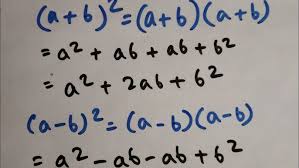 (a+b)²=(a+b)(a+b)
= a² + ab + ab + b²
= a² + 2ab + b²
(a-b)² = (a-b)(a-b)
= a² - ab - ab + b²